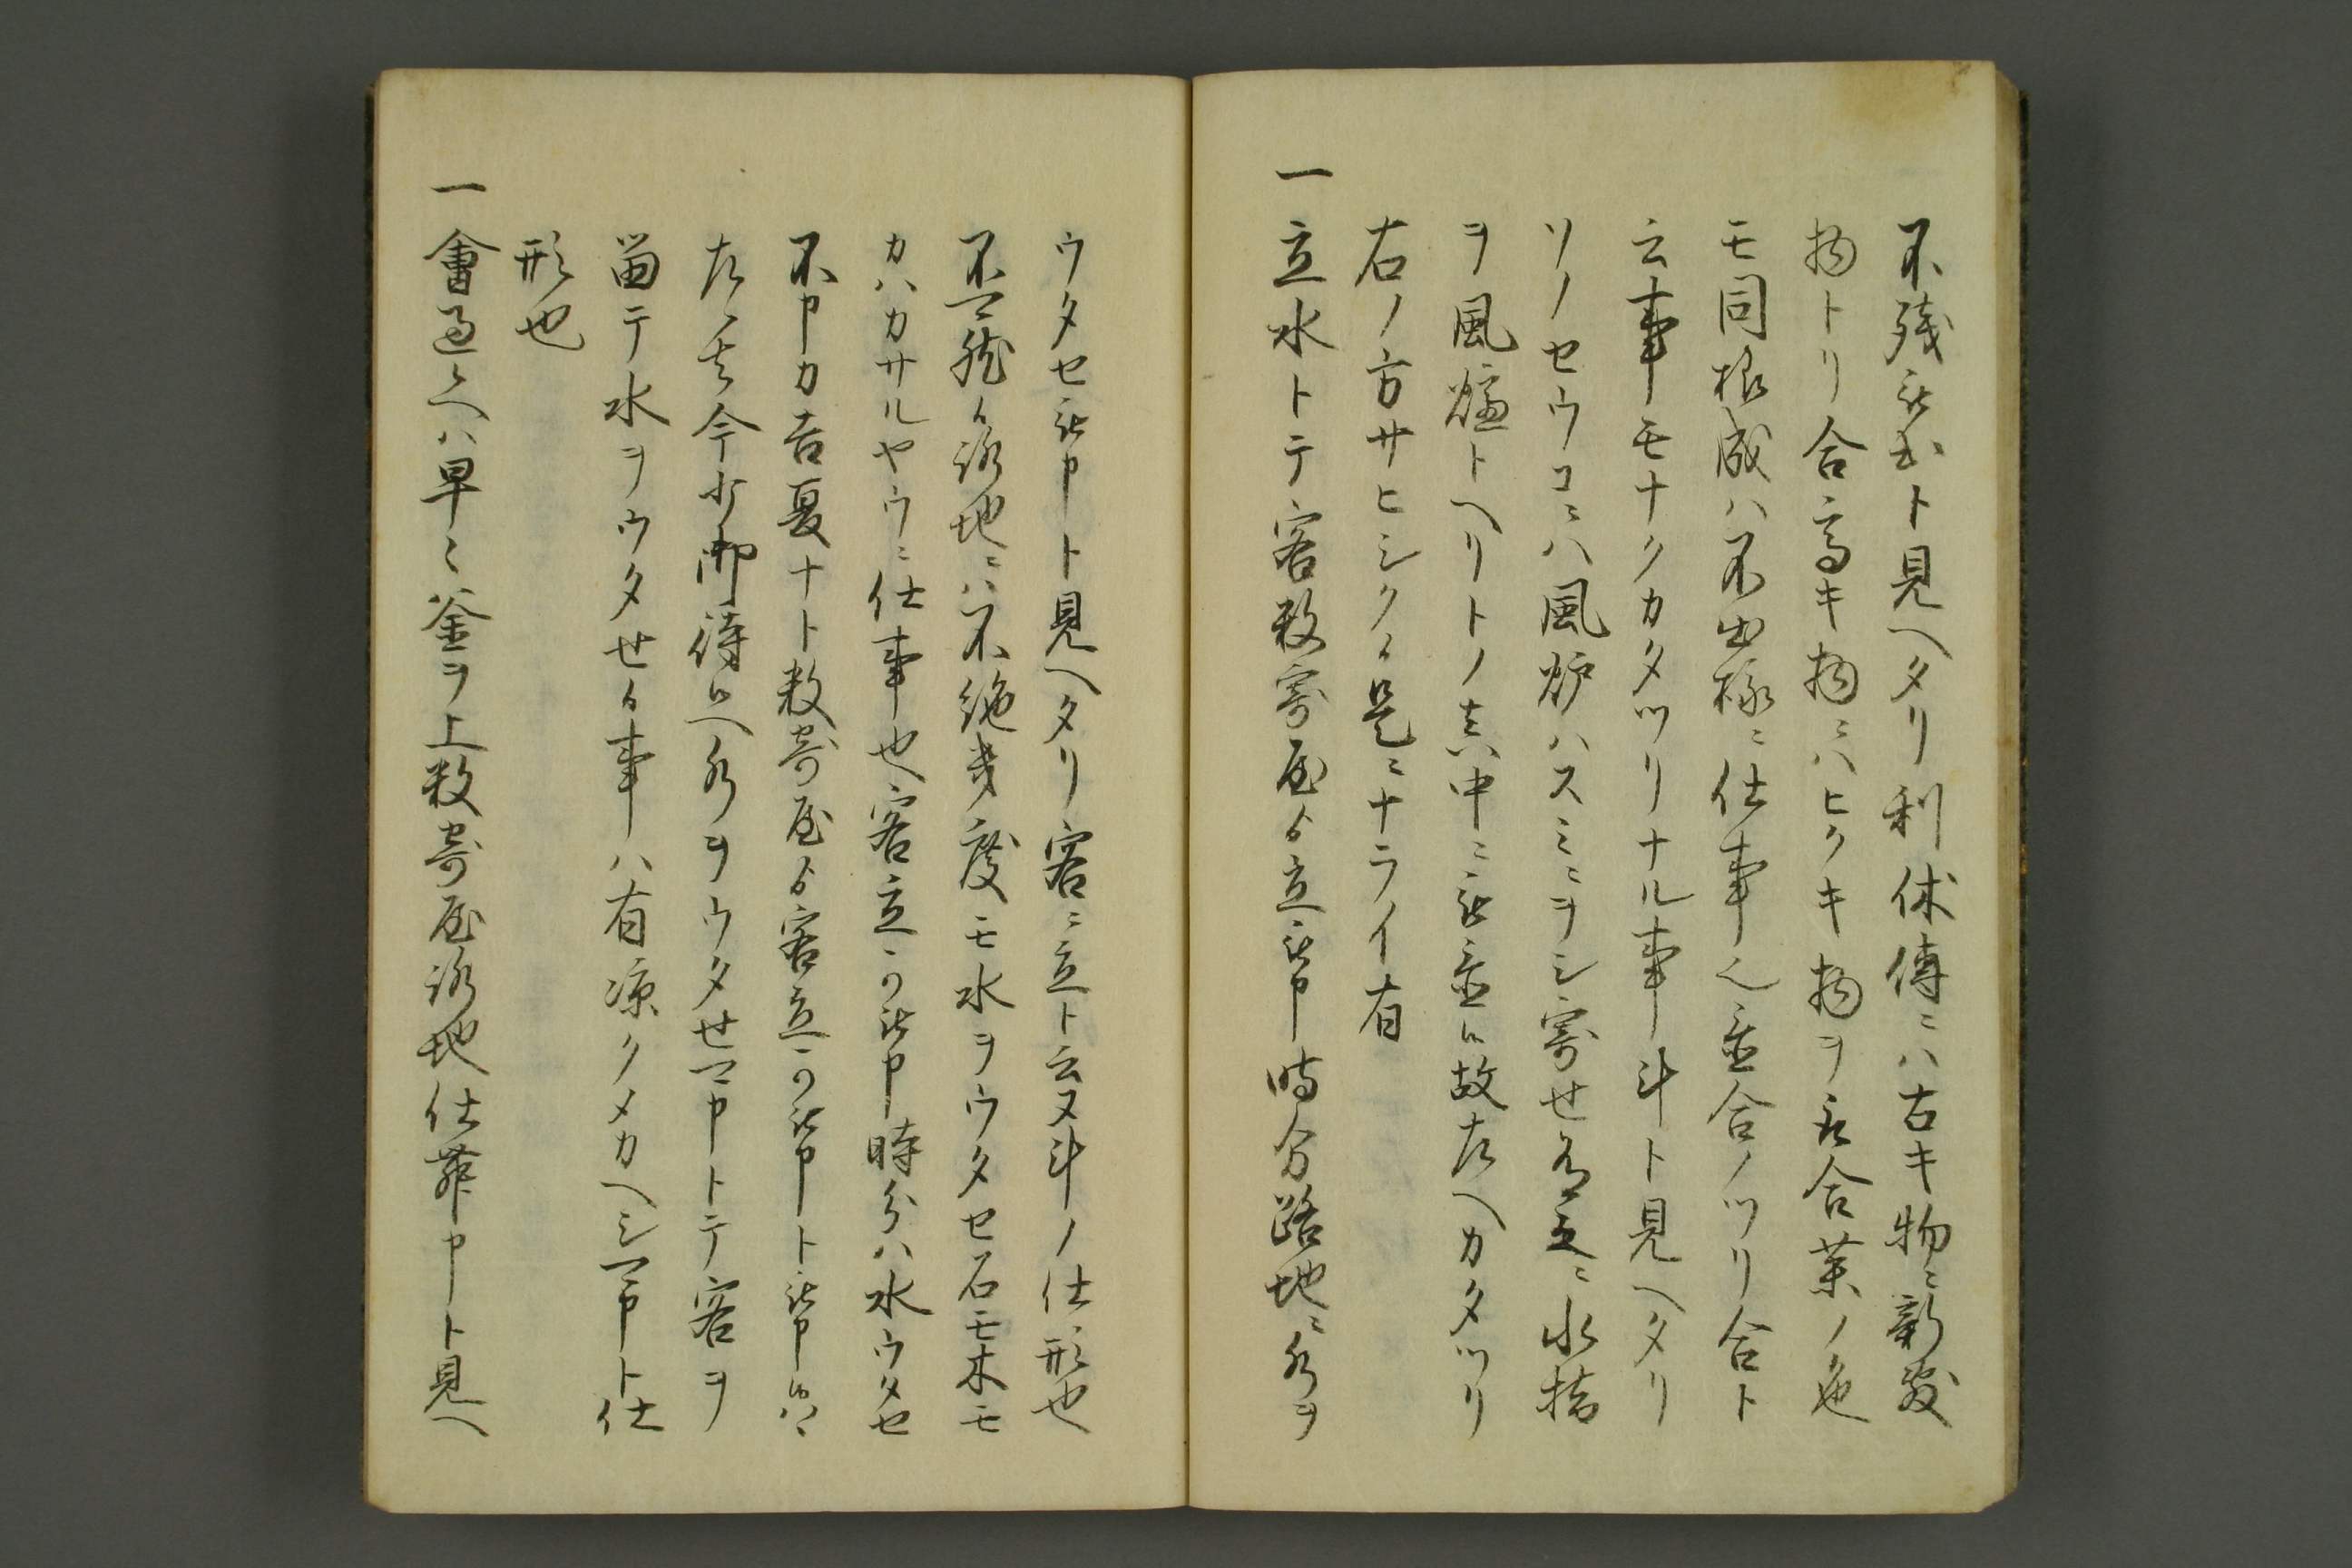 不残被出ト見ヘタリ利休傳ニハ古キ物ニ新敷
物トリ合高キ物ニハヒクキ物ヲ取合葉ノ色
モ同根成ハ不出様ニ仕事也置合ノツリ合ト
云事モナクカタツリナル事斗ト見ヘタリ
ソノセウコニハ風炉ハスミニヲシ寄せ
ヲ風爐トヘリトノ真中ニ被置候故左ヘカタツリ
右ノ方サヒシク候是ニナライ有
一立水トテ客数寄屋ゟ立被申時分路地ニ水ヲ
ウタセ被申ト見ヘタリ客ニ立ト云又斗ノ仕形也
不可然候路地ニハ不絶幾度モ水ヲウタセ石モ木モ
カハカサルヤウニ仕事也客立可被申時分ハ水ウタセ
不申カ吉夏ナト数寄屋ゟ客立可被申ト被申候ハヽ
左候ハ今少御待候ヘ水ヲウタせ可申トテ客ヲ
留テ水ヲウタせ候事ハ有凉クメカヘシ可申ト仕
形也
一會過候ヘハ早々釜ヲ上数寄屋路地仕舞申ト見ヘ